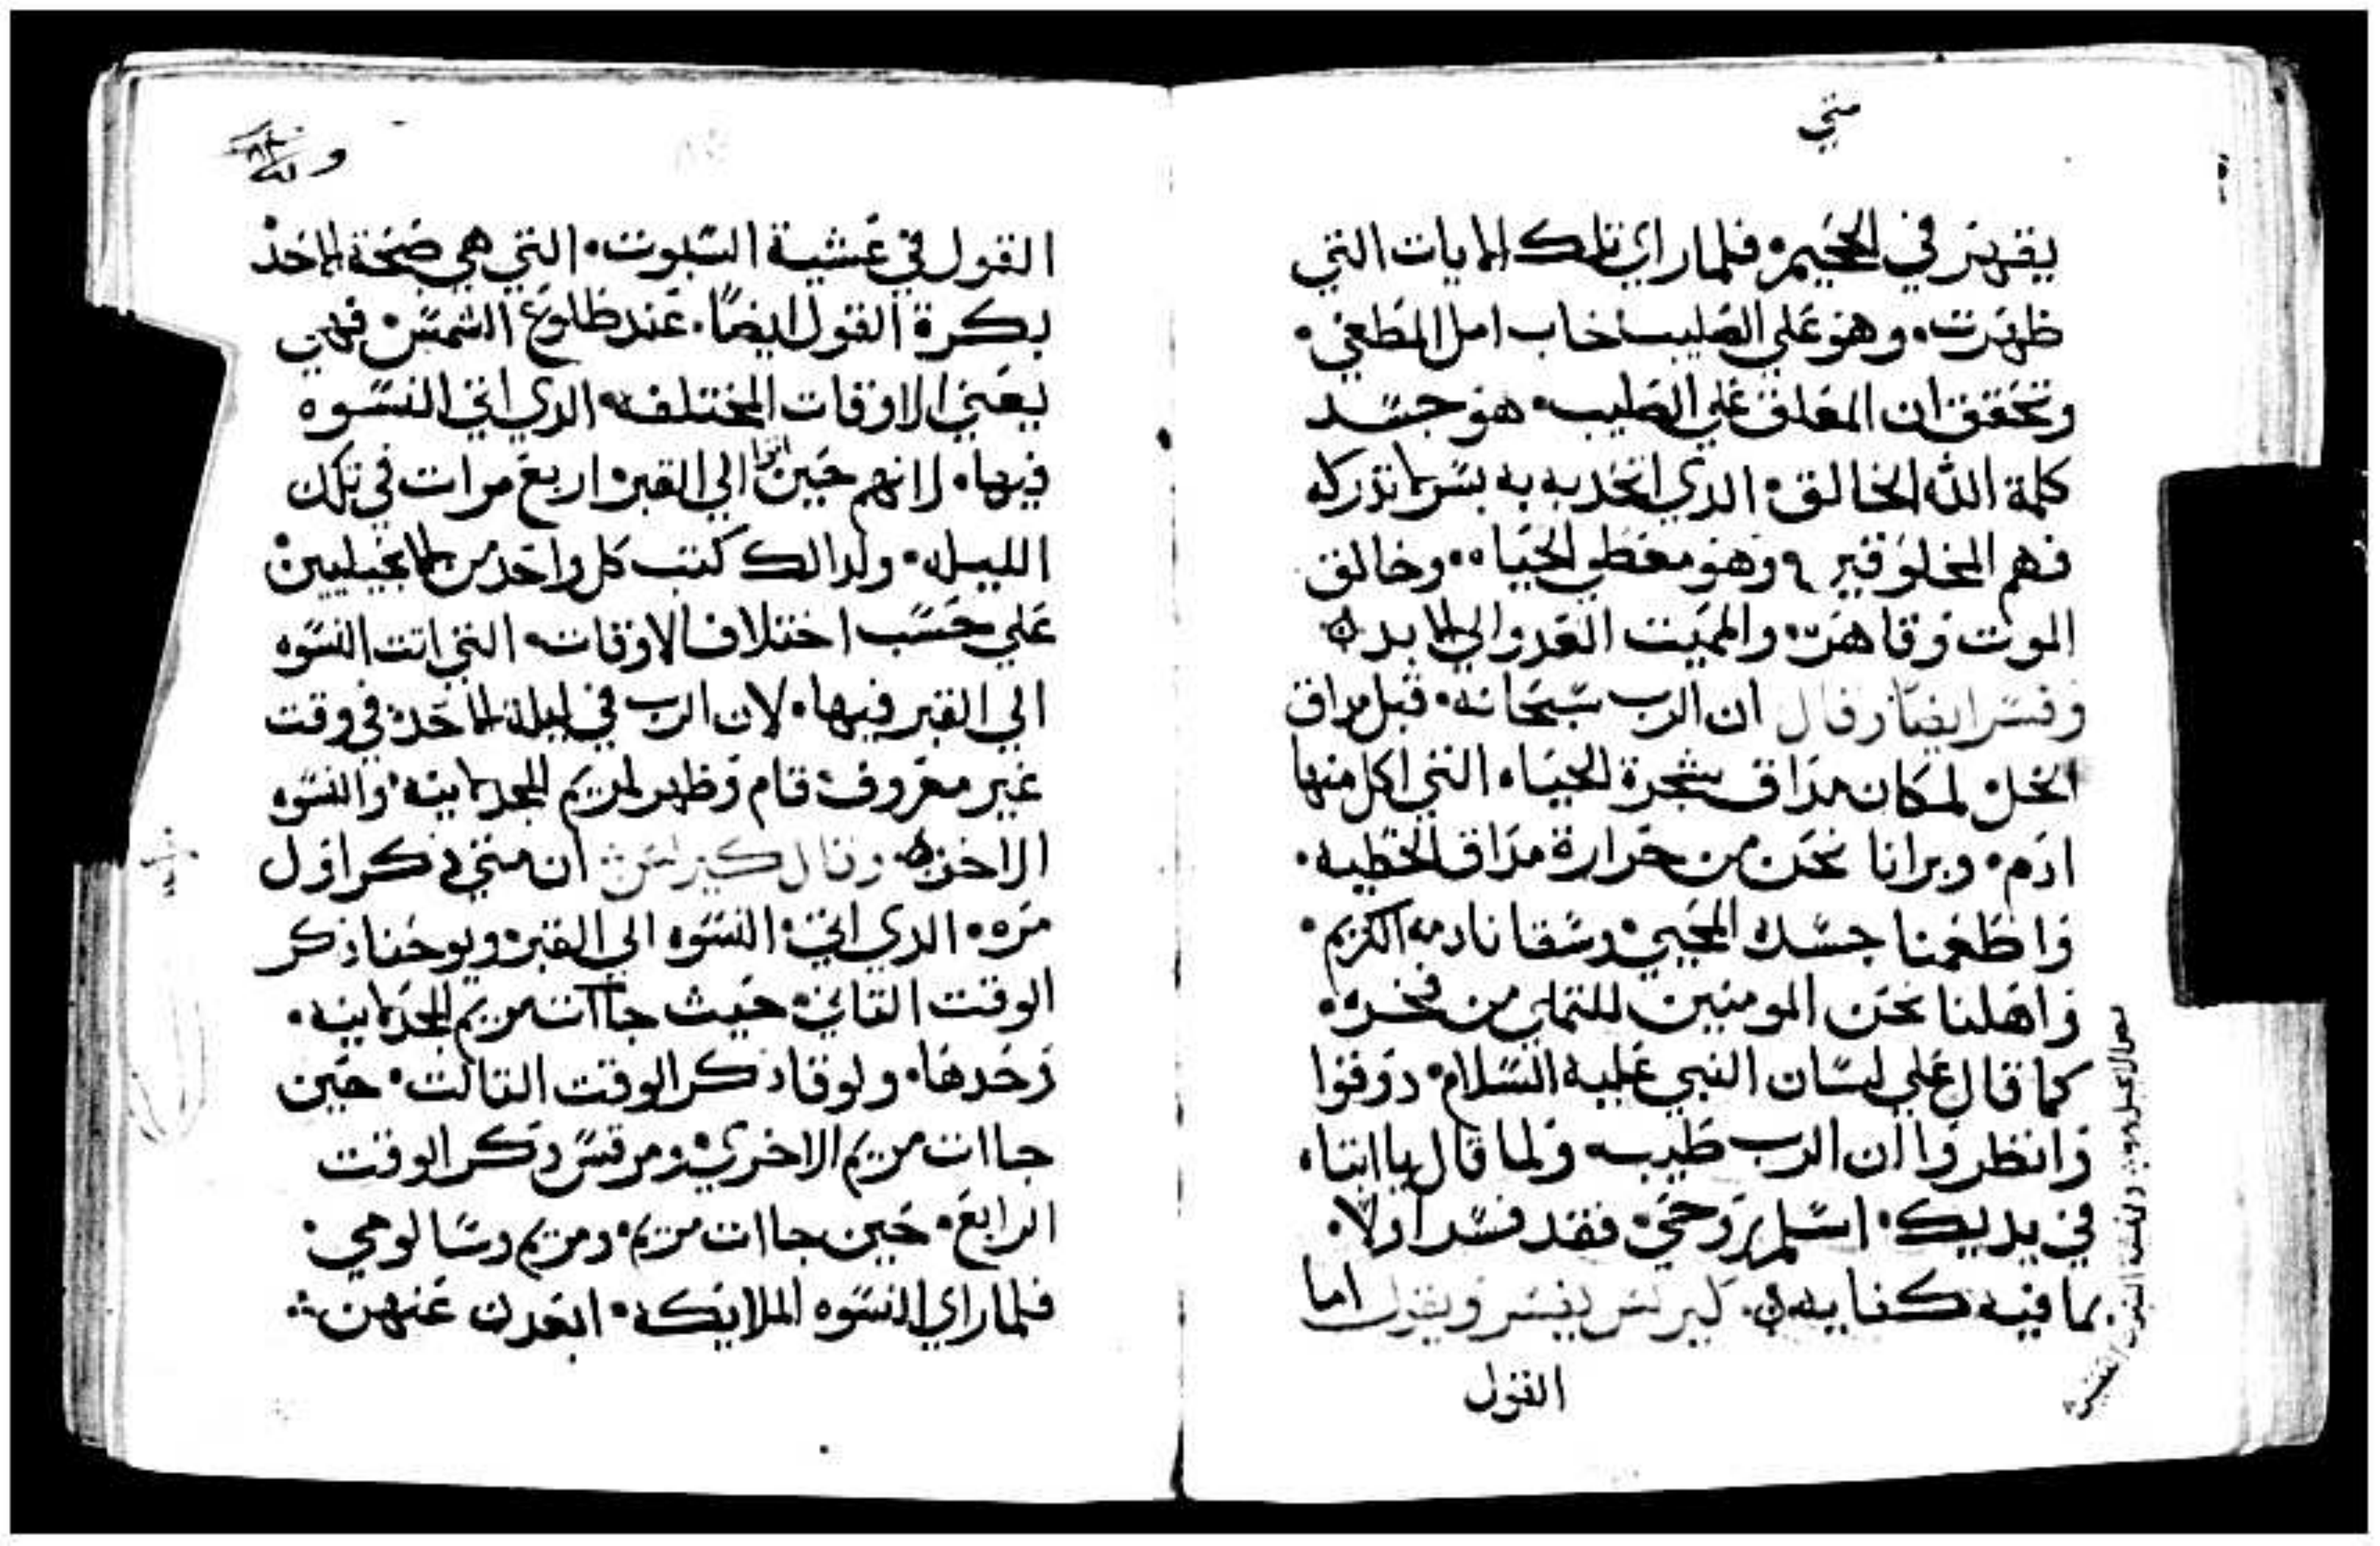 متي
يقهر في الجحيم فلما راي تلك الايات التي
ظهرت وهو علي الصليب خاب امل المطغي
وتحقق ان المعلق علي الصليب هو جسد
كلمة الله الخالق الدي اتحد به بسر لا تدركه
فهم المخلوقين وهو معطي الحياه وخالق
الموت وقاهره والمميت العدو الي الابد
وفسر ايضا وقال ان الرب سبحانه قبل مداق
الخل لمكان مداق شجرة الحياه التي اكل منها
ادم وبرانا نحن من حرارة مداق الخطيه
واطعمنا جسده المحيي وسقانا دمه الكريم
واهلنا نحن المومنين للتملي من فخره
كما قال علي لسان النبي عليه السلام دوقوا
وانظروا ان الرب طيب ولما قال يا ابتاه
في يديك اسلم روحي فقد فسر اولا
بما فيه كفايه كيرلس يفسر ويقول اما
القول
القول في عشية السبوت التي هي صبحة الاحد
بكرة القول ايضا عند طلوع الشمس فهي
يعني الاوقات المختلفه الدي اتي النسوه
فيها لانهم حين اتوا الي القبر اربع مرات في تلك
الليله ولدالك كتب كل واحد من الانجيليين
علي حسب اختلاف الاوقات التي اتت النسوه
الي القبر فيها لان الرب في ليلة الاحد في وقت
غير معروف قام وظهر لمريم المجدلانيه والنسوه
الاخره وقال كيرلس ان متي دكر اول
مره الدي اتي النسوه الي القبر ويوحنا دكر
الوقت التاني حيث جاات مريم المجدلانيه
وحدها ولوقا دكر الوقت التالت حين
جاات مريم الاخري ومرقس دكر الوقت
الرابع حين جاات مريم ومريم وسالومي
فلما راي النسوه الملايكه ابعدن عنهن